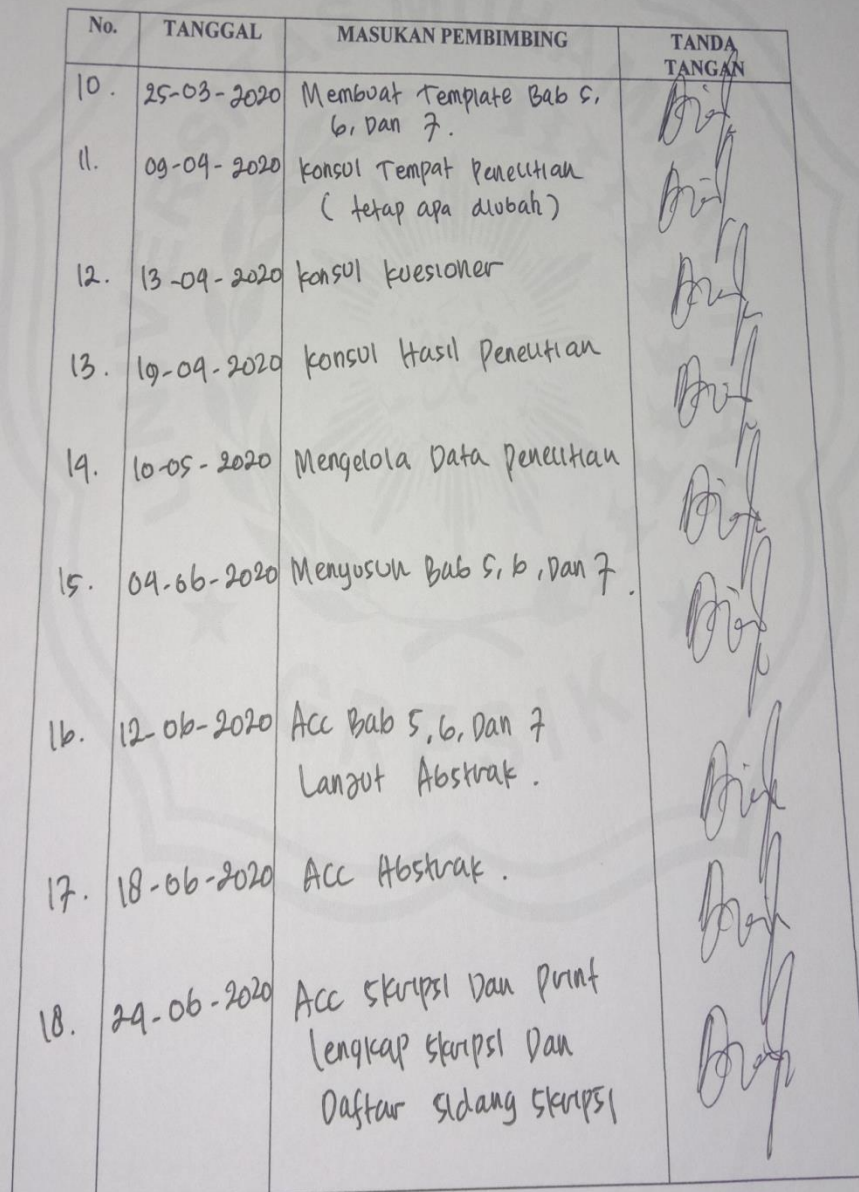 No. TANGGAL MASUKAN PEMBIMBING TANDA
TANGAN
10. 25-03-2020 Membuat Template Bab 5,
6, Dan 7.
11. 09-04-2020 Konsul Tempat Penelitian
( tetap apa diubah )
12. 13-04-2020 Konsul kuesioner
13. 19-04-2020 Konsul Hasil Penelitian
14. 10-05-2020 Mengelola Data Penelitian
15. 04-06-2020 Menyusun Bab 5, 6, Dan 7.
16. 12-06-2020 Acc Bab 5, 6, Dan 7
Lanjut Abstrak.
17. 18-06-2020 Acc Abstrak.
18. 24-06-2020 Acc Skripsi Dan Print
lengkap skripsi Dan
Daftar sidang skripsi